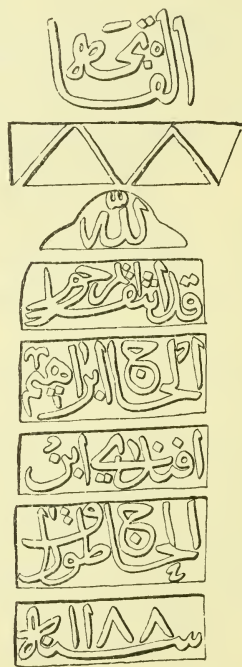 الفاتحه
الله
قد انتقل مرحوم
الحاج ابراهيم
افندي ابن
الحاج
سنه ١١٨٨